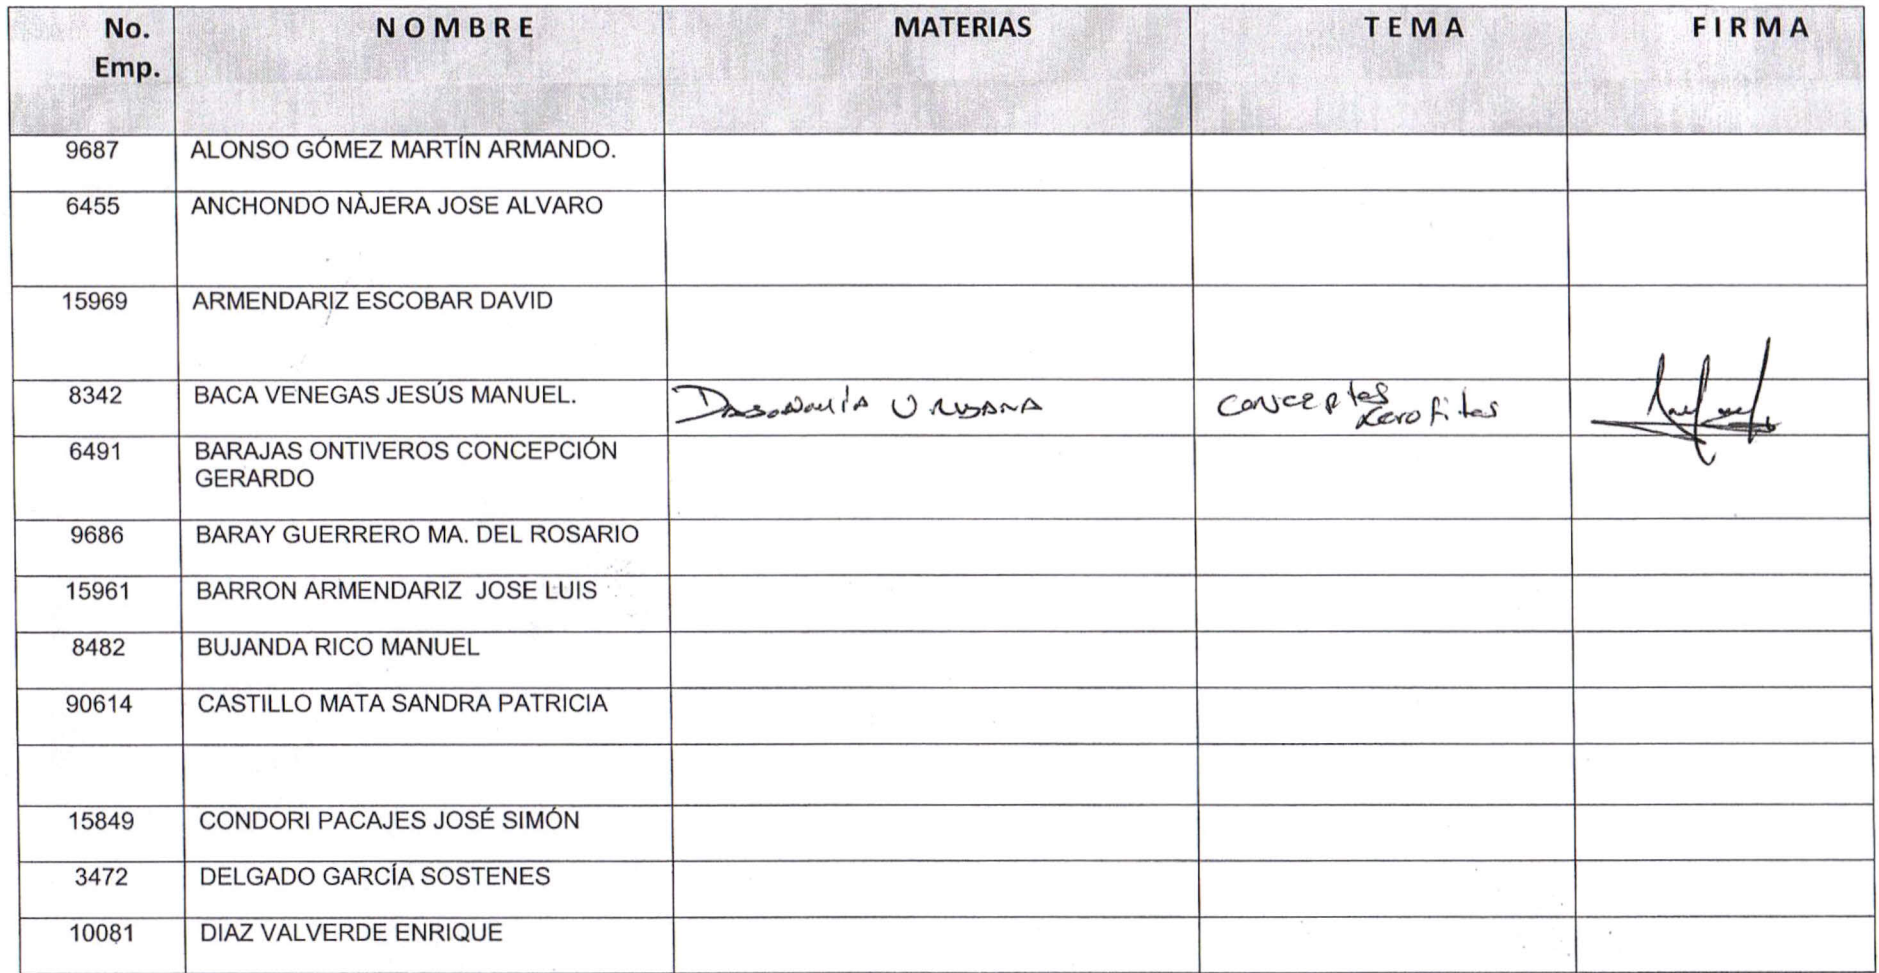 No. Emp. NOMBRE MATERIAS TEMA FIRMA
9687 ALONSO GÓMEZ MARTÍN ARMANDO.
6455 ANCHONDO NÀJERA JOSE ALVARO
15969 ARMENDARIZ ESCOBAR DAVID
8342 BACA VENEGAS JESÚS MANUEL. Dasonomía Urbana conceptos xerofitas
6491 BARAJAS ONTIVEROS CONCEPCIÓN
GERARDO
9686 BARAY GUERRERO MA. DEL ROSARIO
15961 BARRON ARMENDARIZ JOSE LUIS
8482 BUJANDA RICO MANUEL
90614 CASTILLO MATA SANDRA PATRICIA
15849 CONDORI PACAJES JOSÉ SIMÓN
3472 DELGADO GARCÍA SOSTENES
10081 DIAZ VALVERDE ENRIQUE